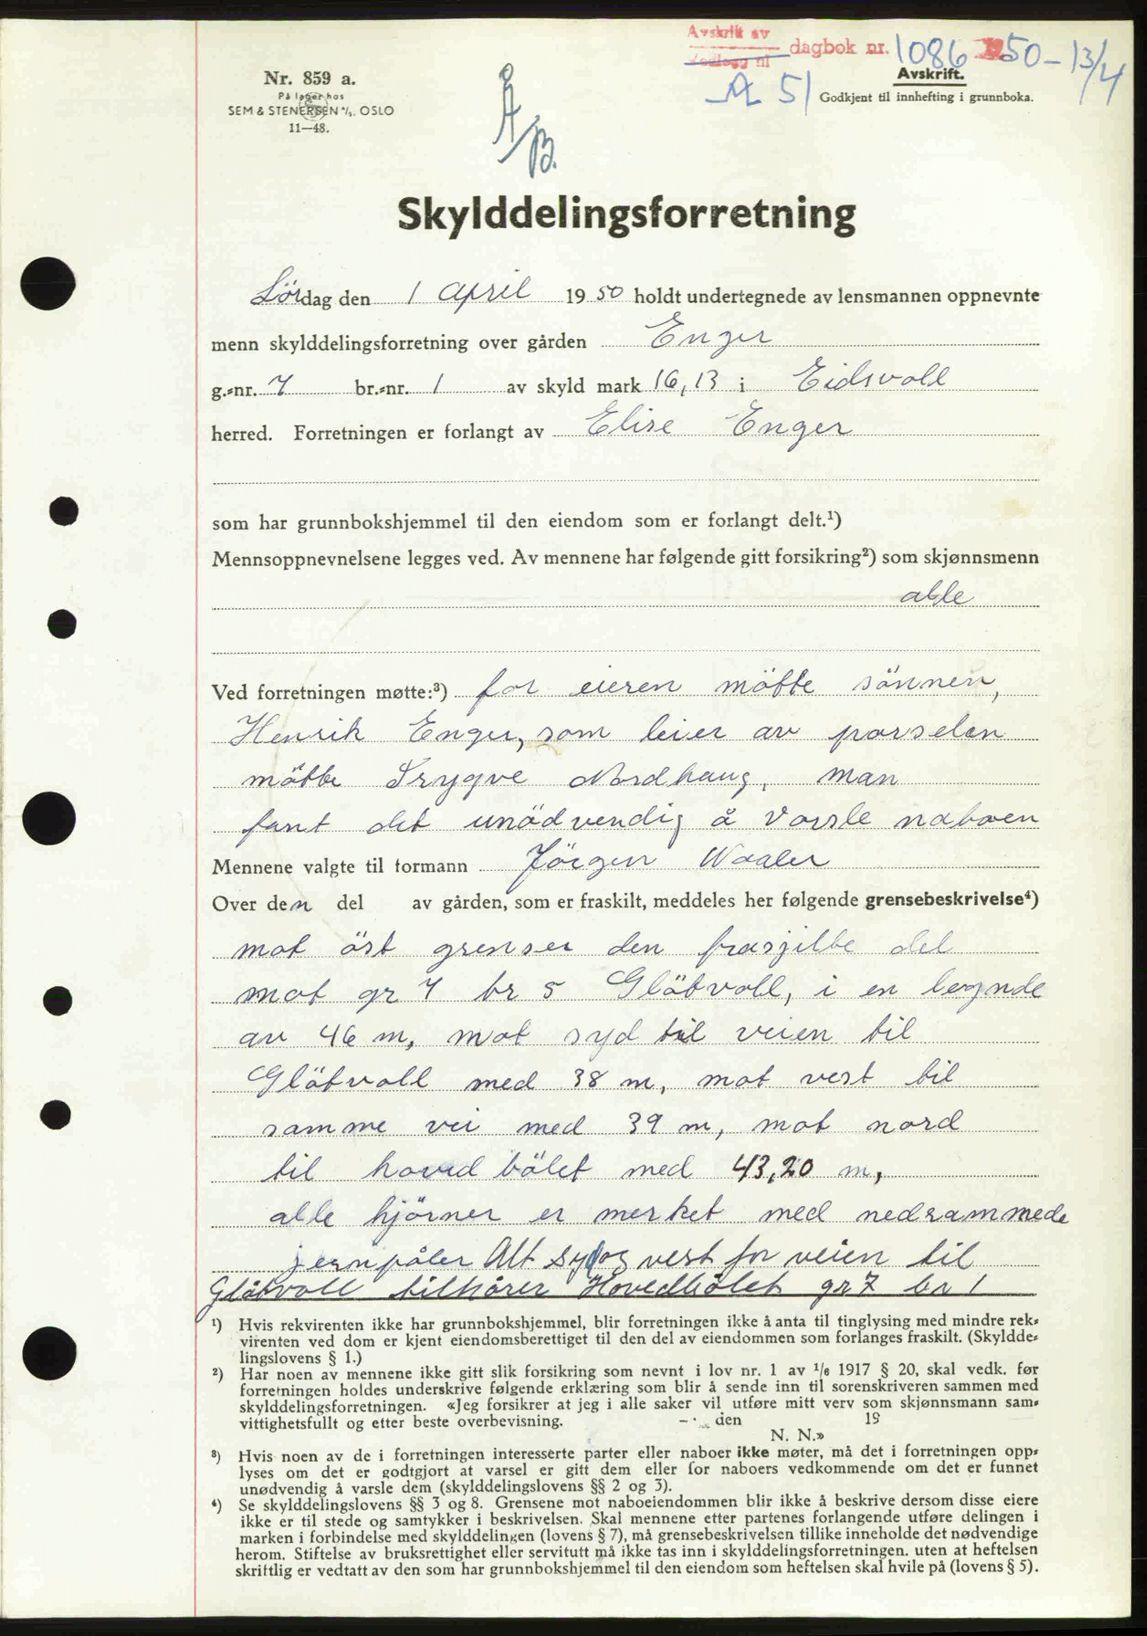 Avskrift av
dagbok nr. 1086 1950-13/4
A 51
Avskrift.
Godkjent til innhefting i grunnboka.
Nr. 859 a.
På lager hos
SEM & STENERSEN A/S. OSLO
11—48.
A/B.
Skylddelingsforretning
Lördag den 1 april 1950 holdt undertegnede av lensmannen oppnevnte
menn skylddelingsforretning over gården Enger
g.-nr. 7 br.-nr. 1 av skyld mark 16,13 i Eidsvoll
herred. Forretningen er forlangt av Elise Enger
som har grunnbokshjemmel til den eiendom som er forlangt delt.¹)
Mennsoppnevnelsene legges ved. Av mennene har følgende gitt forsikring²) som skjønnsmenn
alle
Ved forretningen møtte:³) for eieren mötte sönnen,
Henrik Enger, som leier av parselen
mötte Trygve Nordhaug, man
fant det unödvendig å varsle naboen
Mennene valgte til formann Jörgen Waaler
Over den del av gården, som er fraskilt, meddeles her følgende grensebeskrivelse⁴)
mot öst grenser den frasjilte del
mot gr 7 br 5 Glötvoll, i en lengde
av 46 m, mot syd til veien til
Glötvoll med 38 m, mot vest til
samme vei med 39 m, mot nord
til hovedbölet med 43,20 m,
alle hjörner er merket med nedrammede
jernpåler Alt syd og vest for veien til
Glötvoll tilhörer Hovedbölet gr 7 br 1
¹) Hvis rekvirenten ikke har grunnbokshjemmel, blir forretningen ikke å anta til tinglysing med mindre rek-
virenten ved dom er kjent eiendomsberettiget til den del av eiendommen som forlanges fraskilt. (Skyldde-
lingslovens § 1.)
²) Har noen av mennene ikke gitt slik forsikring som nevnt i lov nr. 1 av 1/6 1917 § 20, skal vedk. før
forretningen holdes underskrive følgende erklæring som blir å sende inn til sorenskriveren sammen med
skylddelingsforretningen. «Jeg forsikrer at jeg i alle saker vil utføre mitt verv som skjønnsmann sam-
vittighetsfullt og etter beste overbevisning. den 19
N. N.»
³) Hvis noen av de i forretningen interesserte parter eller naboer ikke møter, må det i forretningen opp-
lyses om det er godtgjort at varsel er gitt dem eller for naboers vedkommende om det er funnet
unødvendig å varsle dem (skylddelingslovens §§ 2 og 3).
⁴) Se skylddelingslovens §§ 3 og 8. Grensene mot naboeiendommen blir ikke å beskrive dersom disse eiere
ikke er til stede og samtykker i beskrivelsen. Skal mennene etter partenes forlangende utføre delingen i
marken i forbindelse med skylddelingen (lovens § 7), må grensebeskrivelsen tillike inneholde det nødvendige
herom. Stiftelse av bruksrettighet eller servitutt må ikke tas inn i skylddelingsforretningen. uten at heftelsen
skriftlig er vedtatt av den som har grunnbokshjemmel til den eiendom som heftelsen skal hvile på (lovens § 5).